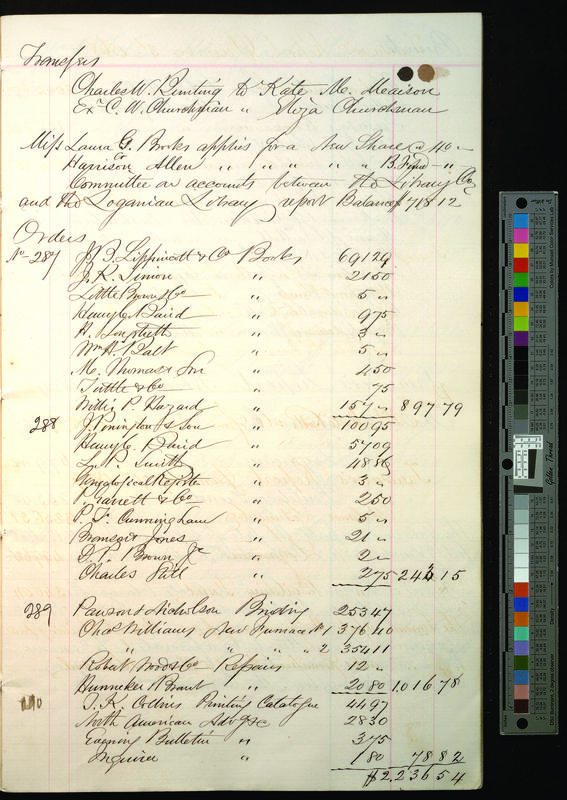 Transfers
Charles W. Bunting to Kate M. Meaison
Exr C. W. Churchman " Eliza Churchman
Miss Laura G. Books applies for a New Share @ 40 "
Harrison Allen " " " " " B. Fund "
Committee on accounts between the Library Co
and the Loganian Library report Balance of 718 12
Orders
No 287 J. B. Lippincott & Co Books 691 29
J. K. Simon " 21 50
Little Brown & Co " 5 "
Henry C. Baird " 9 75
H. Longstreth " 3 "
Wm H. " 5 "
M. Thomas & Son " 4 50
Tuttle & Co " 75
Willis P. Hazard " 157 " 897 79
288 J. Penington & Son " 100 95
Henry C. Baird " 57 09
L. P. Smith " 48 86
Genealogical Register " 3 "
P. Garrett & Co " 2 50
P. F. Cunningham " 5 "
Jones " 21 "
D. P. Brown Jr " 2 "
Charles " 2 75 243 15
289 Pawson & Nicholson Binding 253 47
Chas Williams New Furnace No 1 376 40
" " " " " 2 354 11
Robert Wood & Co Repairs 12 "
Hunneker " 20 80 1.016 78
290 T. K. Collins Printing Catalogue 44 97
North American Adv &c 28 30
Evening Bulletin " 3 75
Inquirer " 1 80 78 82
$2.236 54